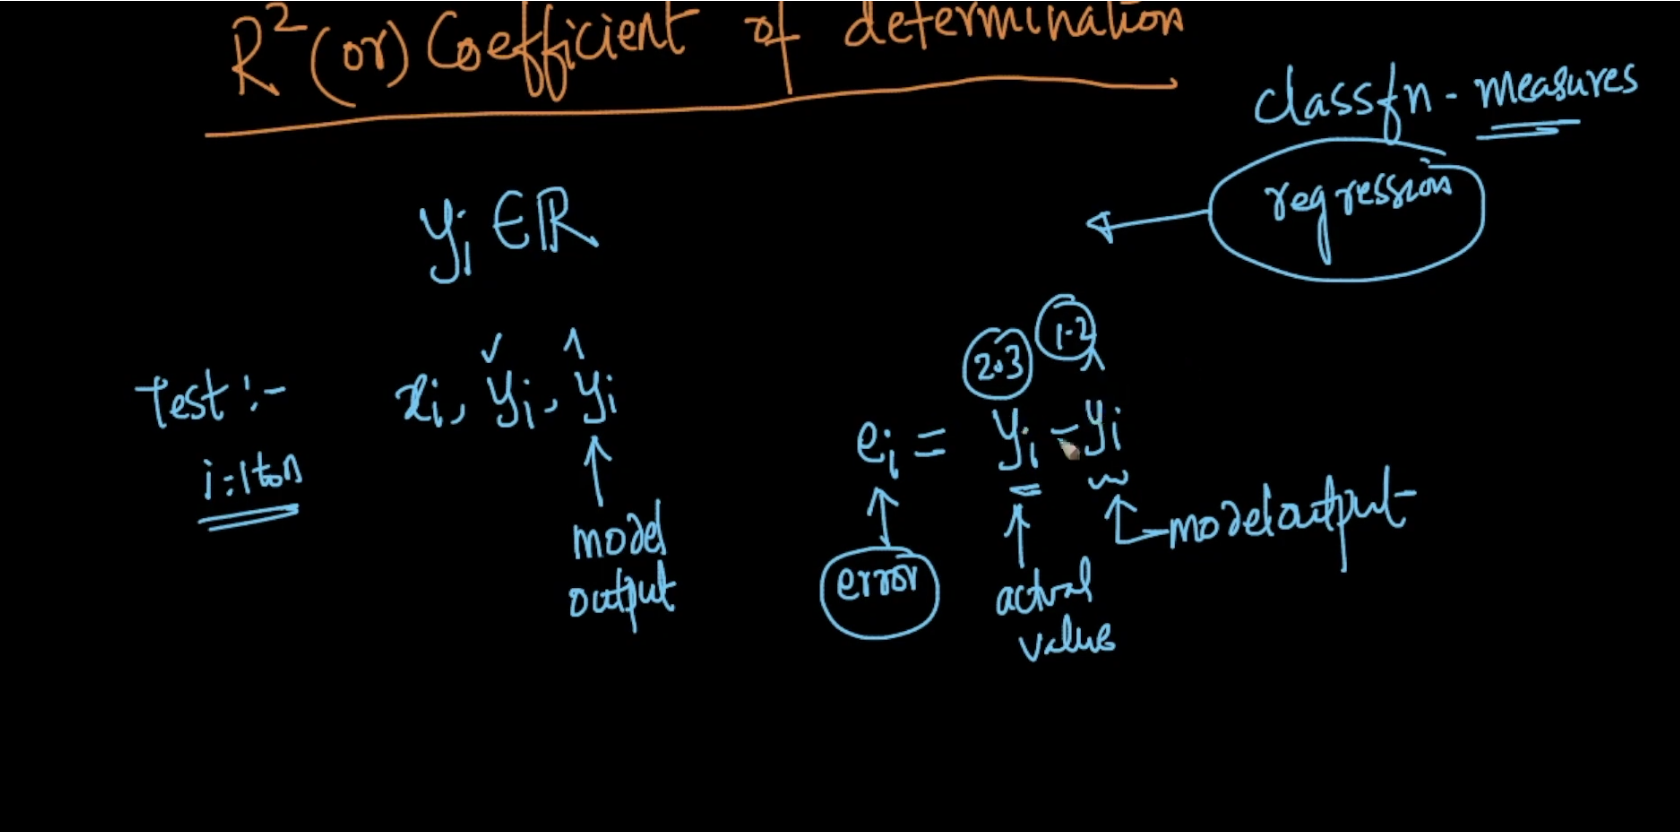 R² (or) Coefficient of determination
classfn - measures
regression
yi ∈ ℝ
Test :- xi, yi, ŷi
i=1 to n
model
output
2.3 1.2
ei = yi - ŷi
error
actual
value
model output